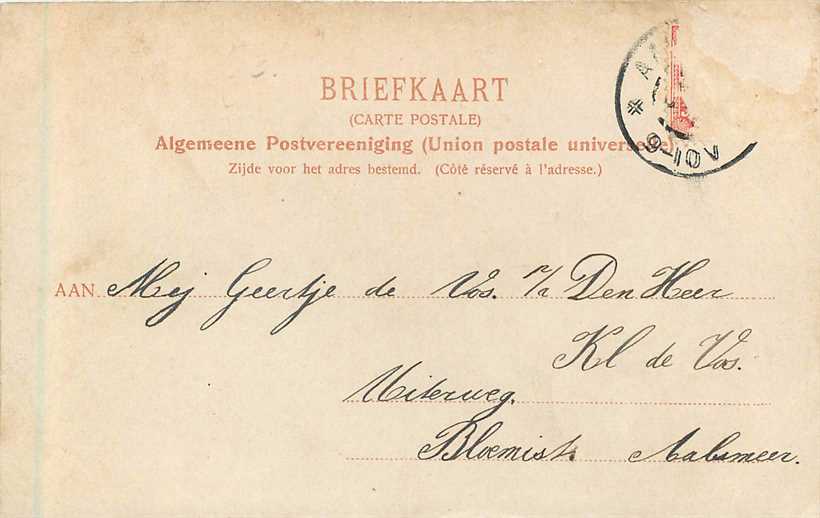 BRIEFKAART
(CARTE POSTALE)
Algemeene Postvereeniging (Union postale universelle)
Zijde voor het adres bestemd. (Côté réservé à l'adresse.)
9-10V
AAN Mej Geertje de Vos. p/a Den Heer
Kl de Vos.
Uiterweg.
Bloemist. Aalsmeer.